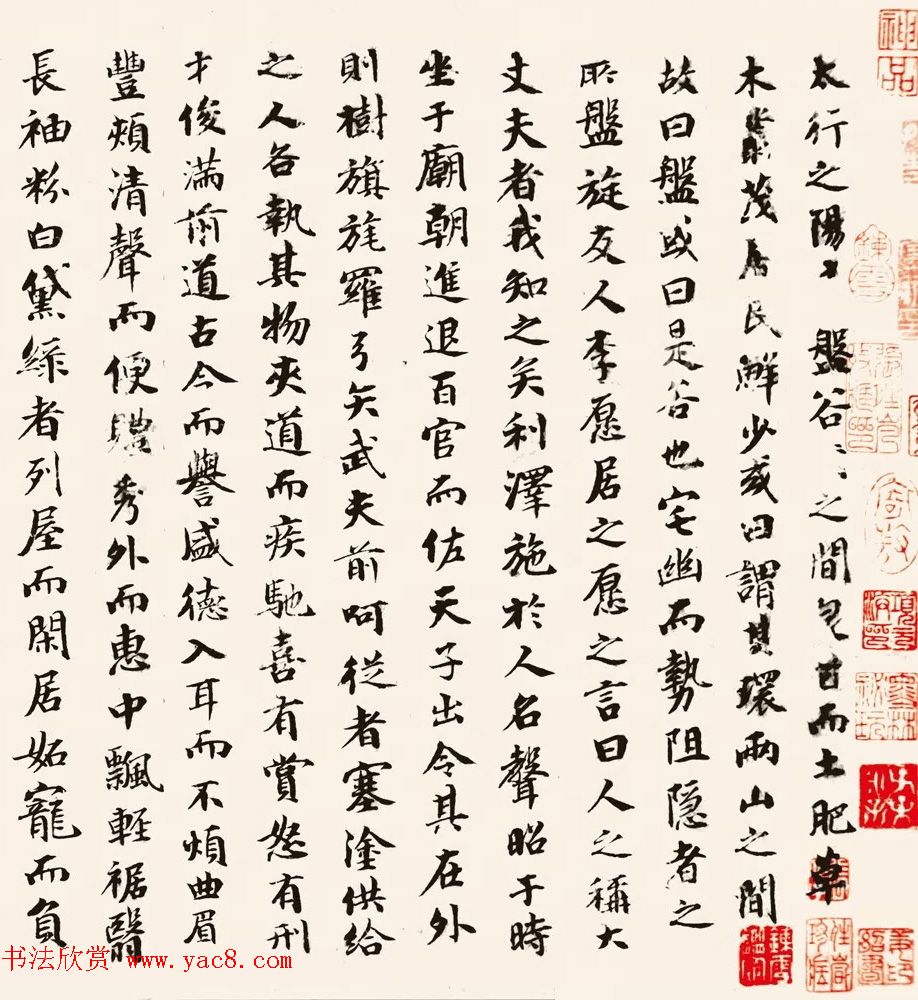 太行之陽盤谷〻之間甘而土肥草
木叢茂居民鮮少或曰謂其環兩山之間
故曰盤或曰是谷也宅幽而勢阻隱者之
所盤旋友人李愿居之愿之言曰人之稱大
丈夫者我知之矣利澤施於人名聲昭于時
坐于廟朝進退百官而佐天子出令其在外
則樹旗旄羅弓矢武夫前呵從者塞塗供給
之人各執其物夾道而疾馳喜有賞怒有刑
才俊滿前道古今而譽盛德入耳而不煩曲眉
豐頰清聲而便體秀外而惠中飄輕裾翳
長袖粉白黛綠者列屋而閑居妬寵而負
神品
书法欣赏 www.yac8.com